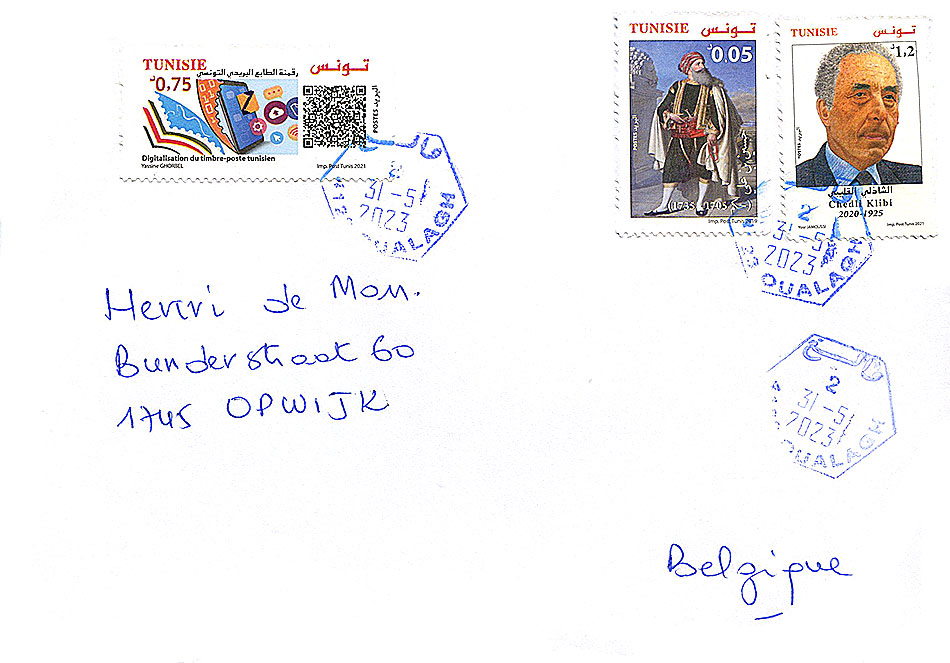 TUNISIE تونس
0,75 د
رقمنة الطابع البريدي التونسي
POSTES البريد
Digitalisation du timbre-poste tunisien
Yassine GHORBEL Imp. Post Tunis 2021
TUNISIE تونس
0,05 د
POSTES البريد
حسين بن علي
(1735-1705)
Imp. Post Tunis 2019
TUNISIE تونس
1,2 د
POSTES البريد
الشاذلي القليبي
Chedli Klibi
2020-1925
Yosr JAMOUSSI Imp. Post Tunis 2021
2
31-5
2023
OUALAGH
2
31-5
2023
OUALAGH
2
31-5
2023
OUALAGH
Henri de Mon.
Bunderstraat 60
1745 OPWIJK
Belgique